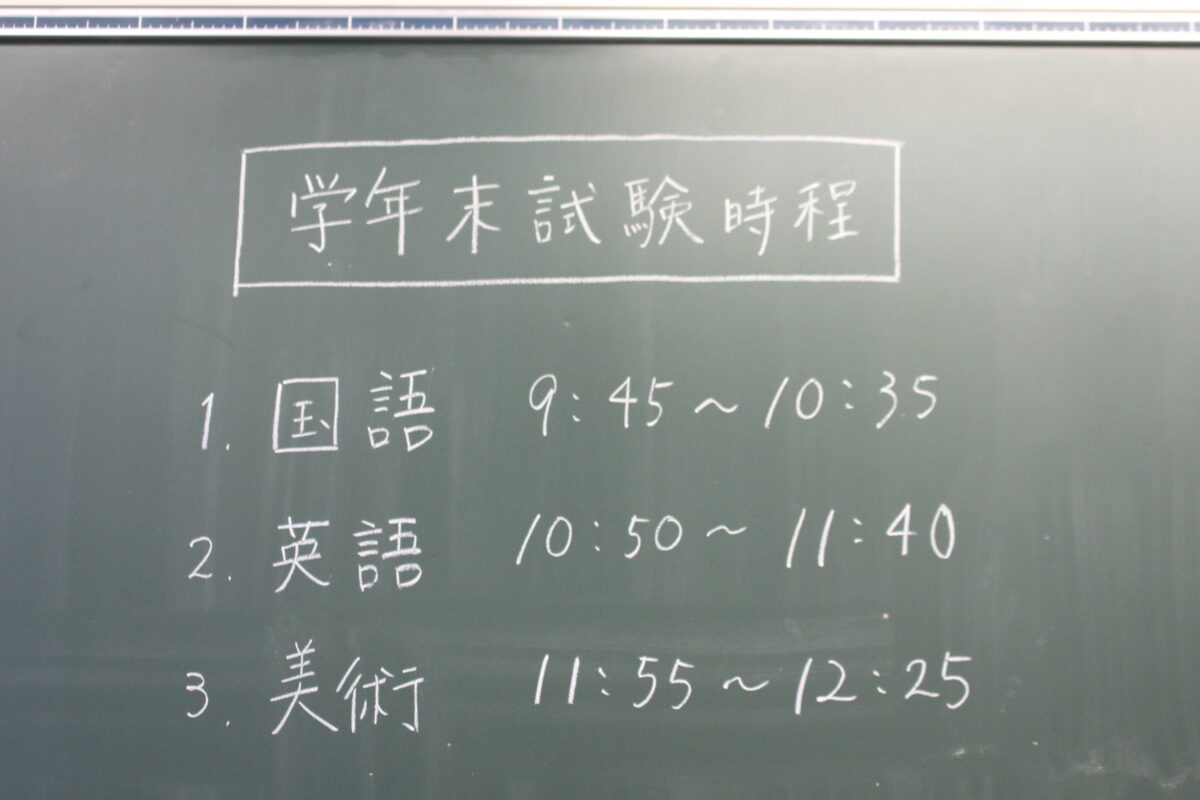 学年末試験時程
1. 国語 9:45~10:35
2. 英語 10:50~11:40
3. 美術 11:55~12:25